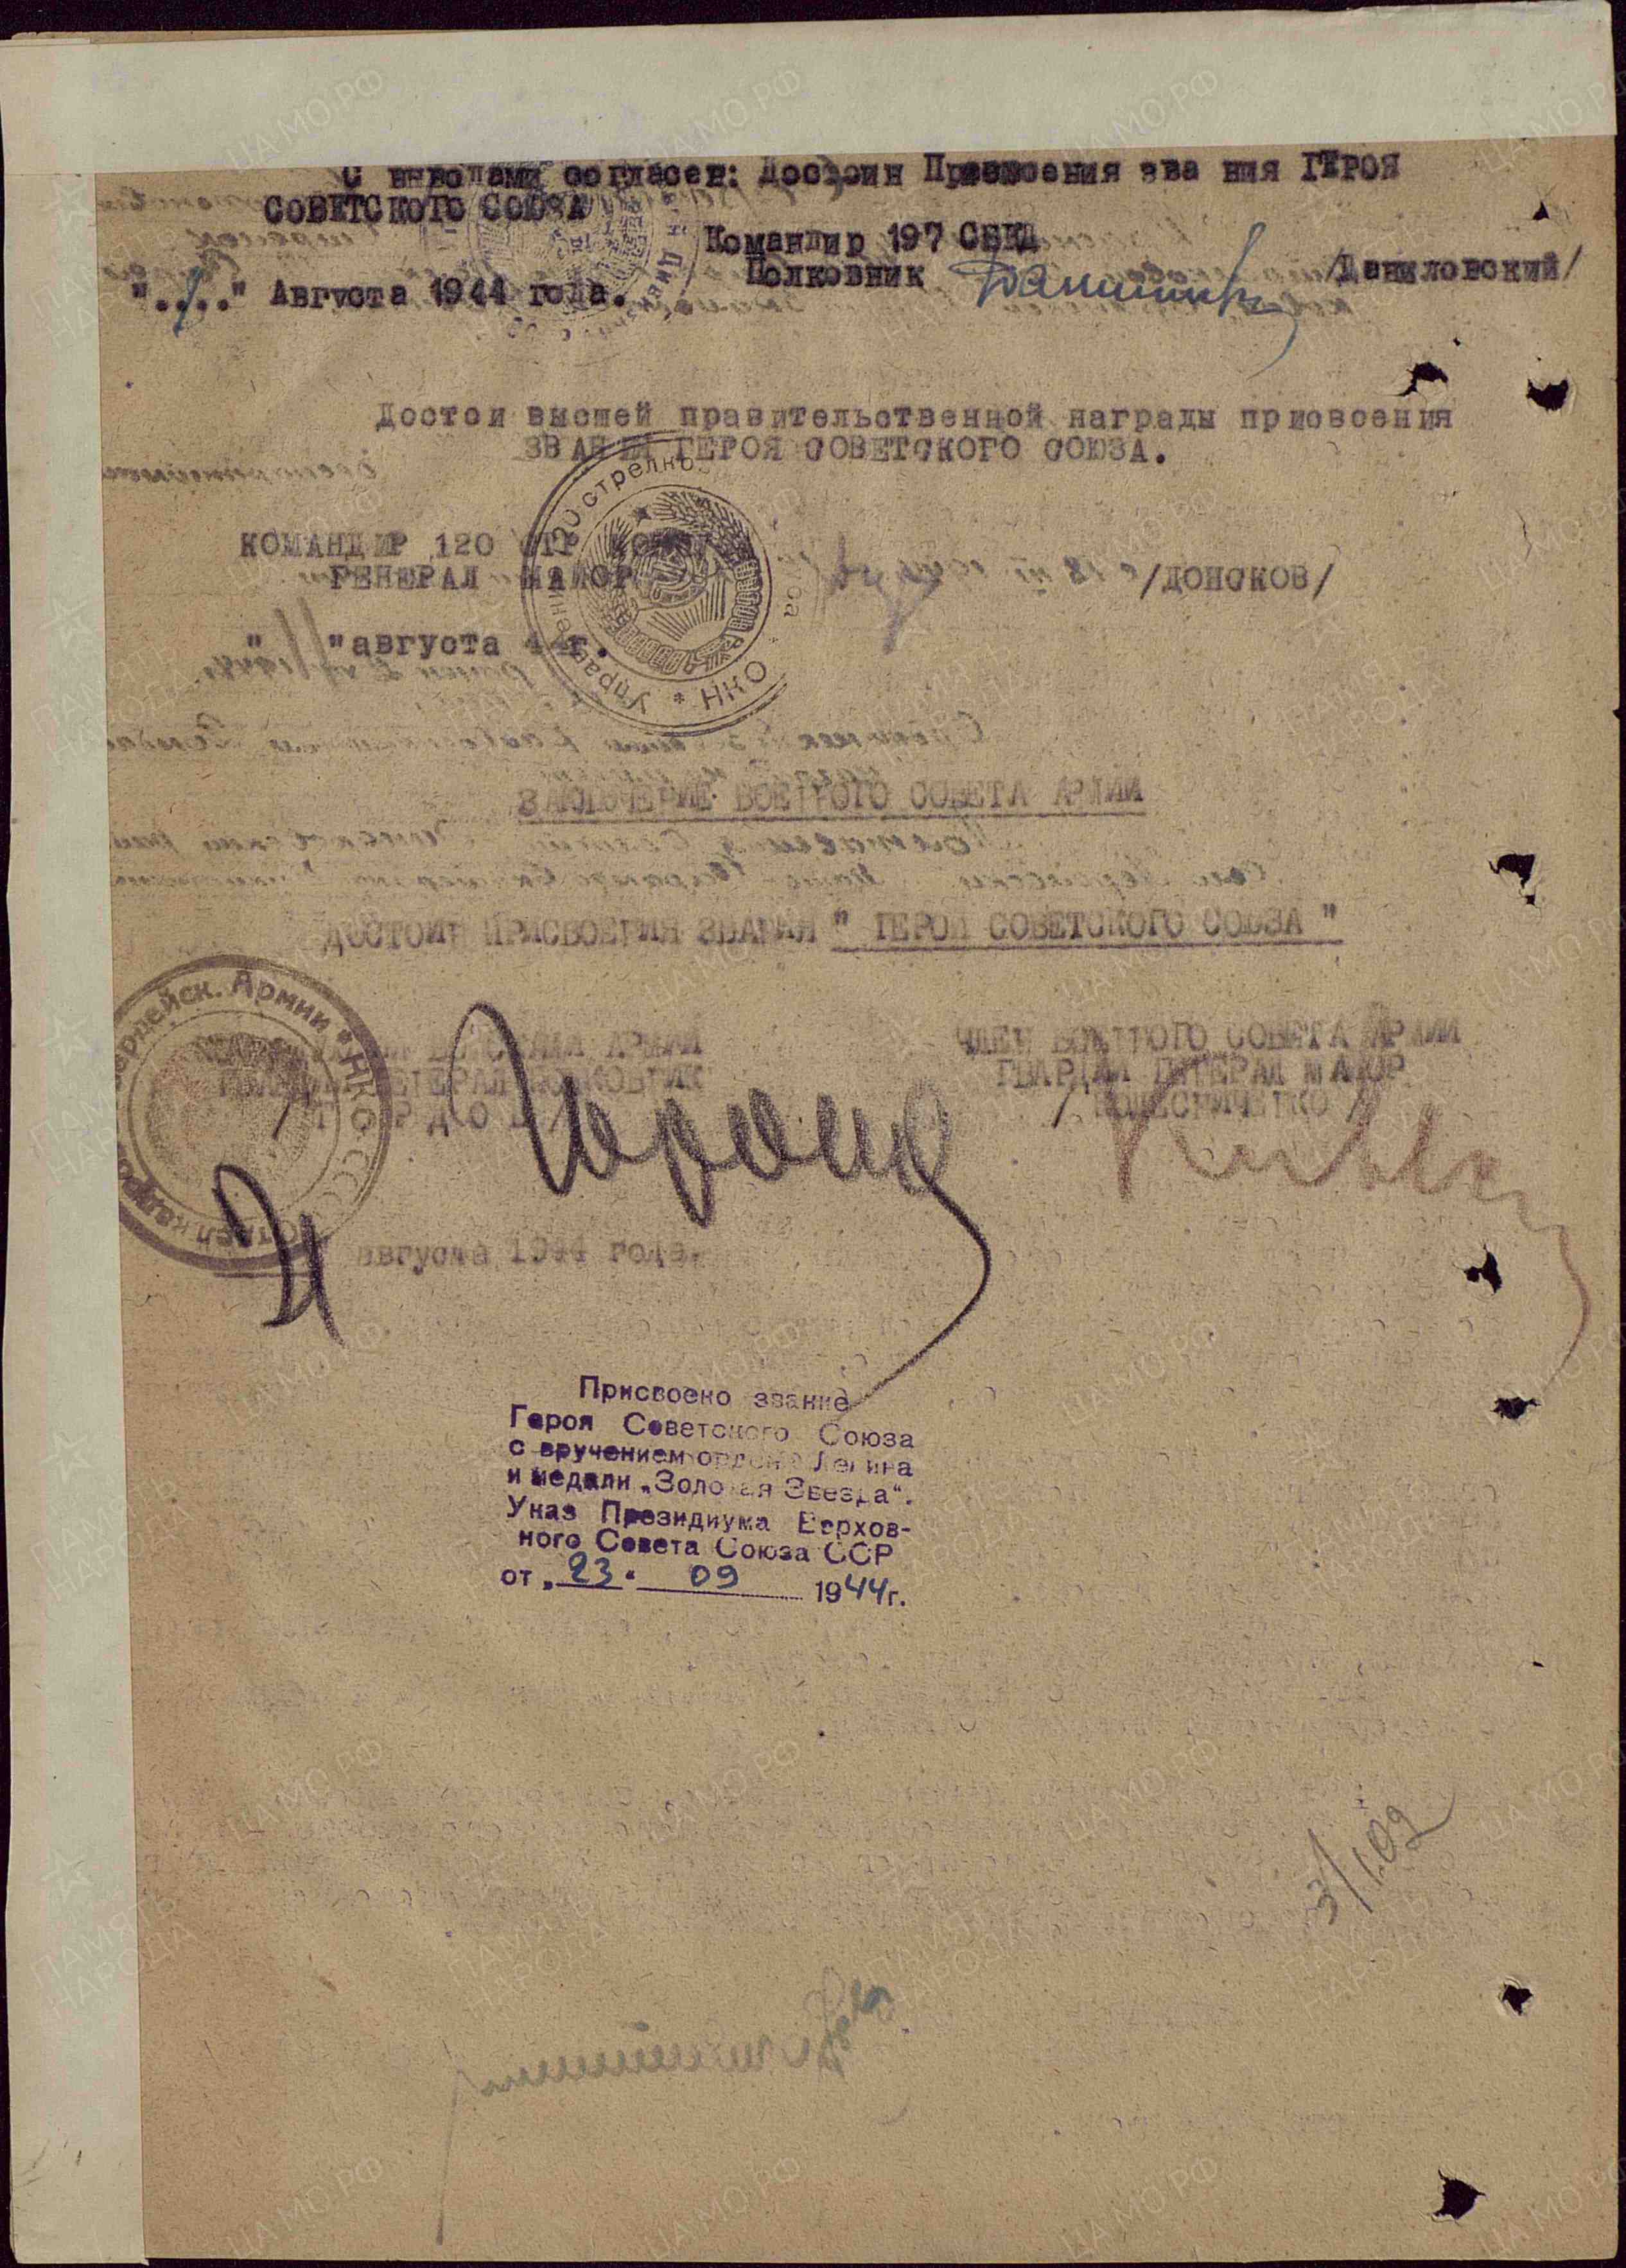 С выводами согласен: Достоин Присвоения зва ния ГЕРОЯ
СОВЕТСКОГО СОЮЗА
Командир 197 СБКД
Полковник /Даниловский/
"..1.." Августа 1944 года.
Достои высшей правительственной награды присвоения
ЗВАНИЯ ГЕРОЯ СОВЕТСКОГО СОЮЗА.
КОМАНДИР 120 СТР
ГЕНЕРАЛ МАЙОР /ДОНСКОВ/
" 11 "августа 44г.
ЗАКЛЮЧЕНИЕ ВОЕННОГО СОВЕТА АРМИИ
ДОСТОИН ПРИСВОЕНИЯ ЗВАНИЯ " ГЕРОЙ СОВЕТСКОГО СОЮЗА "
ВОЙСКАМИ АРМИИ
ГВАРДИИ ГЕНЕРАЛ ПОЛКОВНИК
/ Г О Р Д О В /
ЧЛЕН ВОЕННОГО СОВЕТА АРМИИ
ГВАРДИИ ГЕНЕРАЛ МАЙОР
/ КОЛЕСНИЧЕНКО /
августа 1944 года.
Присвоено звание
Героя Советского Союза
с вручением ордена Ленина
и медали „Золотая Звезда“.
Указ Президиума Верхов-
ного Совета Союза ССР
от „ 23 “ 09 1944г.
3/1.09